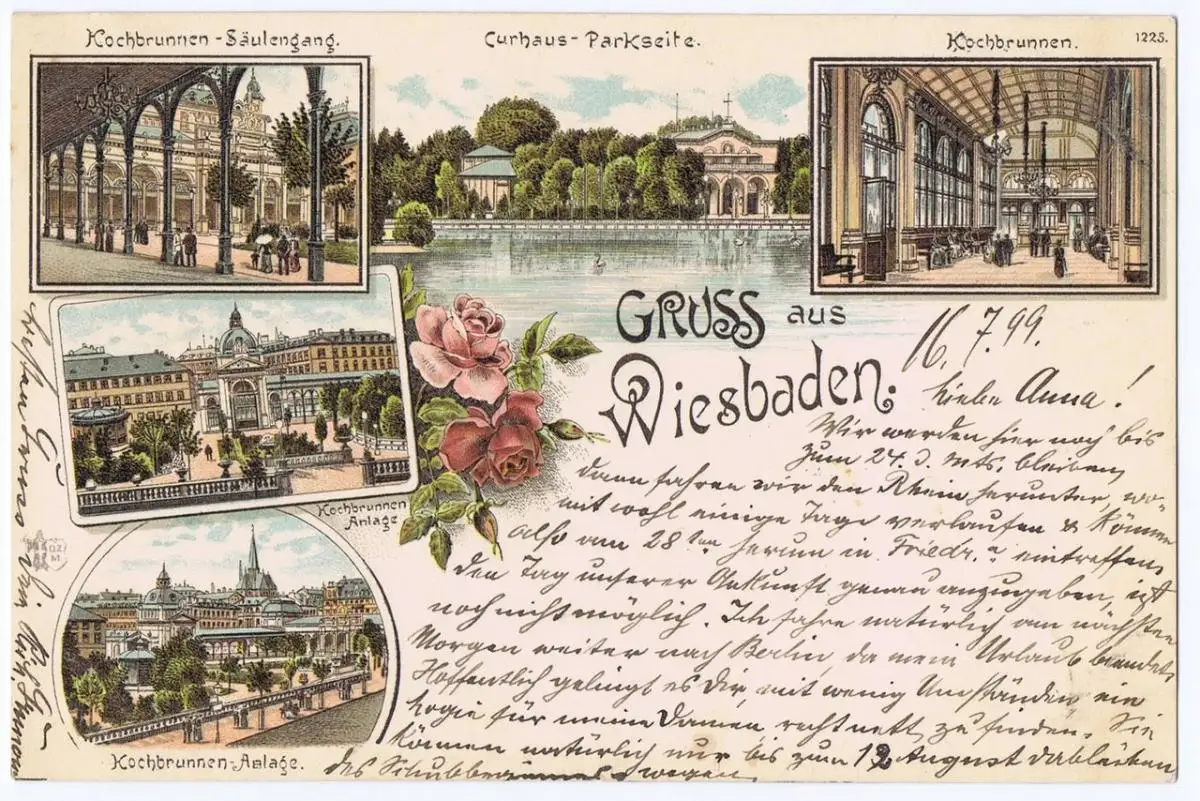 Kochbrunnen-Säulengang.
Curhaus-Parkseite.
Kochbrunnen.
1225.
GRUSS aus
Wiesbaden.
Kochbrunnen
Anlage
Kochbrunnen-Anlage.
16.7.99.
Liebe Anna!
Wir werden hier noch bis
zum 24. d. Mts. bleiben,
dann fahren wir den Rhein herunter, wo-
mit wohl einige Tage verlaufen & können
also am 28ten herum in Friedr.a eintreffen,
den Tag unserer Ankunft genau anzugeben, ist
noch nicht möglich. Ich fahre natürlich am nächsten
Morgen weiter nach Berlin, da mein Urlaub beendet.
Hoffentlich gelingt es Dir, mit wenig Umständen ein
Logie für meine Damen, recht nett, zu finden. Sie
können natürlich nur bis zum 12 August dableiben
des Schulbeginnes wegen